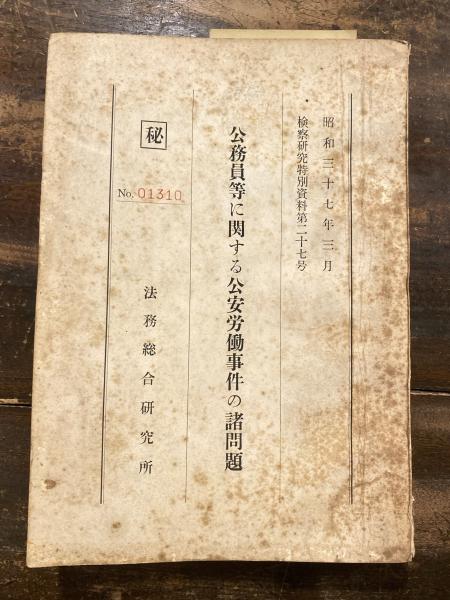 昭和三十七年三月
検察研究特別資料第二十七号
公務員等に関する公安労働事件の諸問題
秘
No. 01310
法務総合研究所